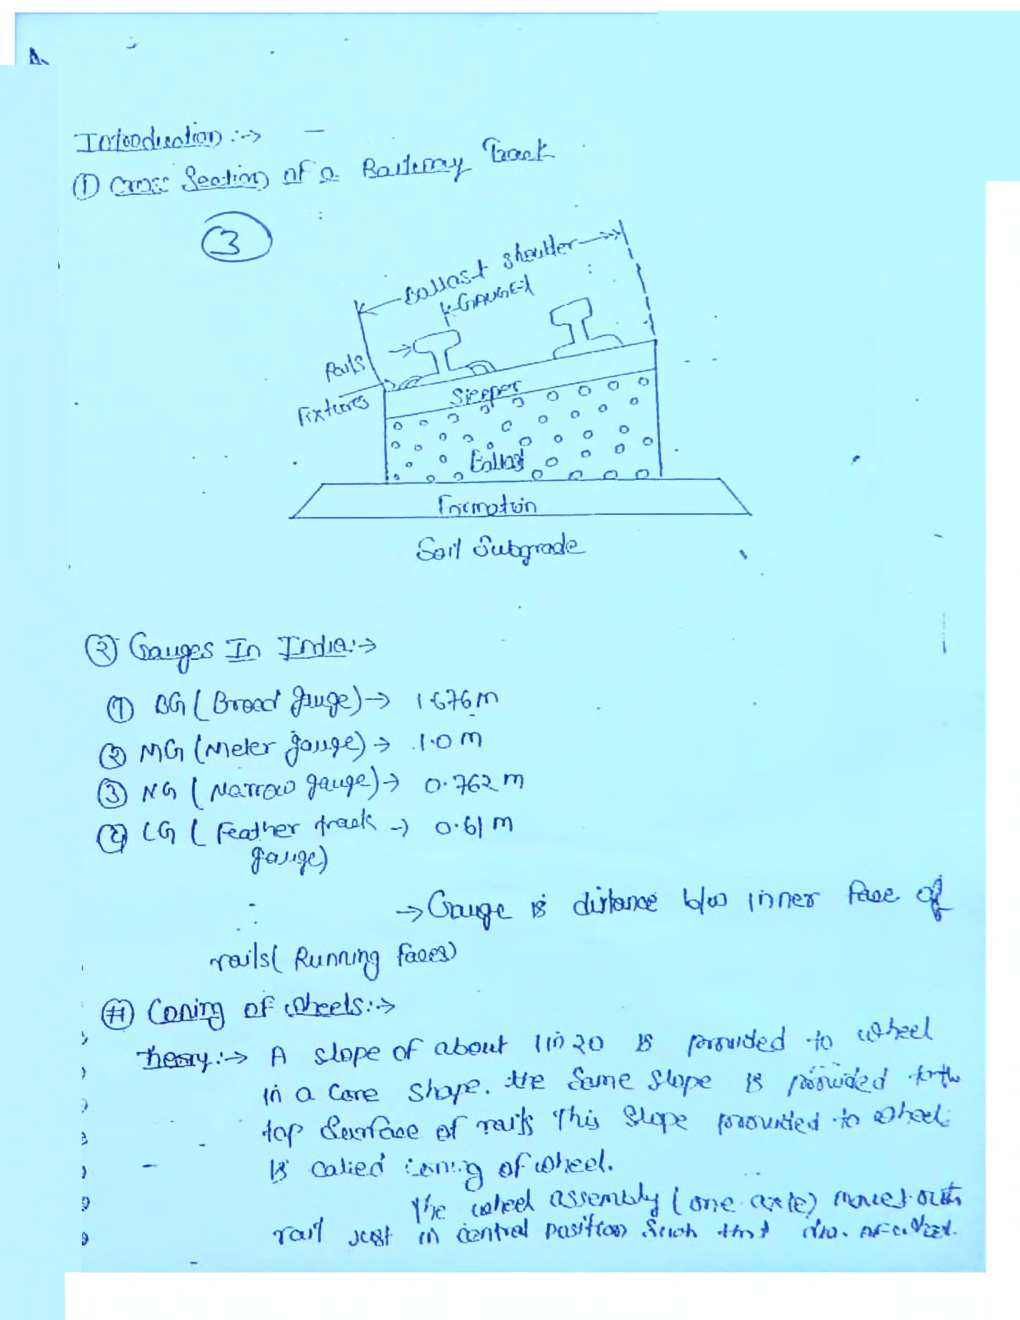 Introduction :→ —
① Cross Section of a Railway Track
③
Ballast shoulder
GAUGE
Rails
Fixtures
Sleeper
Ballast
Formation
Soil Subgrade
② Gauges In India:→
① BG (Broad gauge) → 1.676 m
② MG (Meter gauge) → 1.0 m
③ NG ( Narrow gauge) → 0.762 m
④ LG ( Feather track → 0.61 m
gauge)
→ Gauge is distance b/w inner face of
rails( Running faces)
# Coning of wheels:→
Theory:→ A slope of about 1 in 20 is provided to wheel
in a Cone shape. the Same Slope is provided to the
top Surface of rails This Slope provided to wheel
is called coning of wheel.
The wheel assembly (one axle) moved
rail just in central position Such that dia. of wheel.